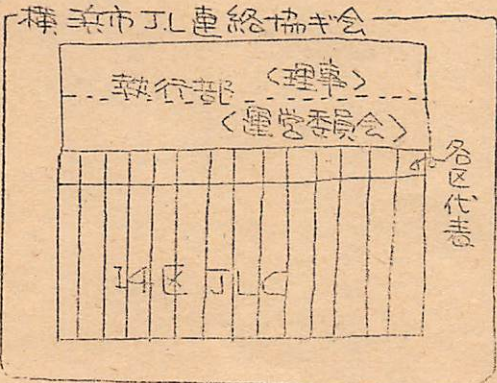 横浜市J.L連絡協ギ会
執行部〈理事〉
〈運営委員会〉
各区代表
14区 JLC